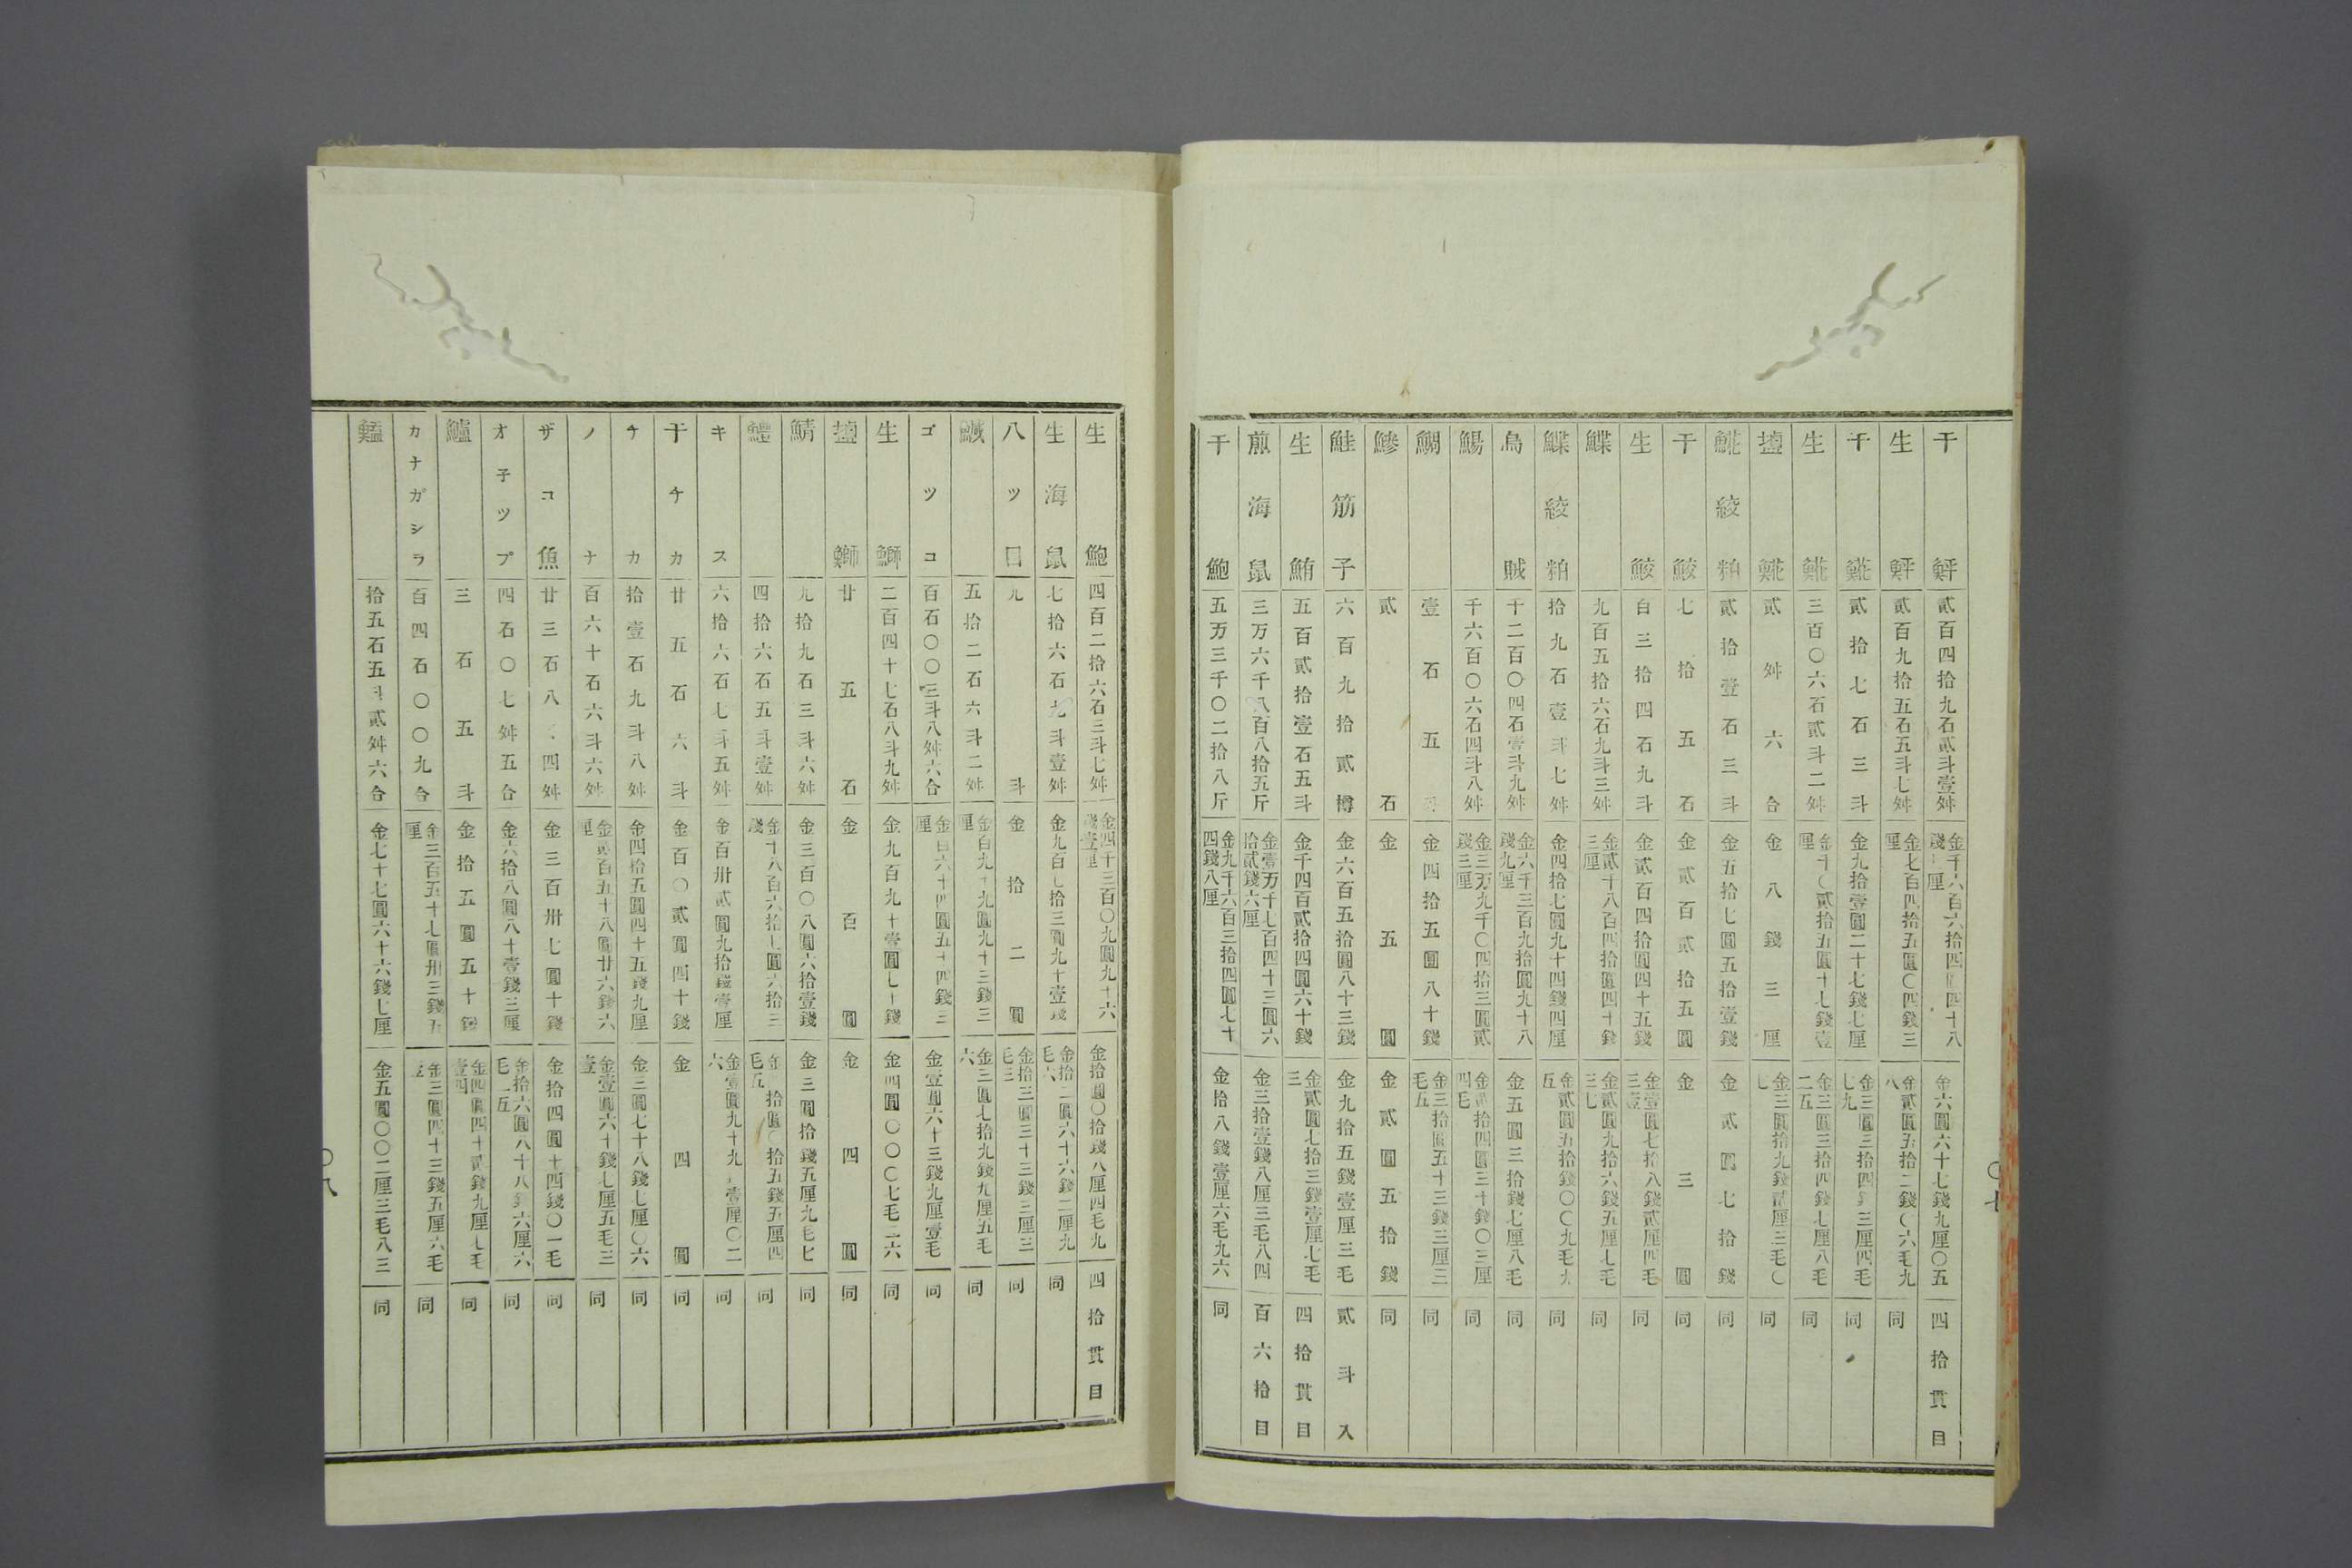 干鮃 貳百四拾九石貳斗壹舛 金六圓六十七錢九厘〇五 四拾貫目
生鮃 貳百九拾五石五斗七舛 金七百四拾五圓〇四錢三厘 金貳圓五拾二錢〇六毛九八 同
干𩹷 貳拾七石三斗 金九拾壹圓二十七錢七厘 金三圓三拾四錢三厘四毛七九 同
生𩹷 三百〇六石貳斗二舛 金千〇貳拾五圓十七錢壹厘 金三圓三拾四錢七厘八毛二五 同
鹽𩹷 貳舛六合 金八錢三厘 金三圓拾九錢貳厘三毛〇七 同
𩹷絞粕 貳拾壹石三斗 金五拾七圓五拾壹錢 金貳圓七拾錢 同
干鮫 七拾五石 金貳百貳拾五圓 金三圓 同
生鮫 百三拾四石九斗 金貳百四拾圓四十五錢 金壹圓七拾八錢貳厘四毛三壹 同
鰈 九百五拾六石九斗三舛 金貳千八百四拾圓四十錢三厘 金貳圓九拾六錢五厘七毛三七 同
鰈絞粕 拾九石壹斗七舛 金四拾七圓九十四錢四厘 金貳圓五拾錢〇〇九毛九五 同
烏賊 千二百〇四石壹斗九舛 金六千三百九拾圓九十八錢九厘 金五圓三拾錢七厘八毛 同
鰑 千六百〇六石四斗八舛 金三万九千〇四拾三圓貳錢三厘 金貳拾四圓三十錢〇三厘四毛 同
鯛 壹石五斗 金四拾五圓八十錢 金三拾圓五十三錢三厘三毛五 同
鰺 貳石 金五圓 金貳圓五拾錢 同
鮭筋子 六百九拾貳樽 金六百五拾圓八十三錢 金九拾五錢壹厘三毛 貳斗入
生鮪 五百貳拾壹石五斗 金千四百貳拾四圓六十錢 金貳圓七拾三錢壹厘七毛三 四拾貫目
煎海鼠 三万六千八百八拾五斤 金壹万千七百四十三圓六拾貳錢六厘 金三拾壹錢八厘三毛八四 百六拾目
干鮑 五万三千〇二拾八斤 金九千六百三拾四圓七十四錢八厘 金拾八錢壹厘六毛九六 同
〇七
生鮑 四百二拾六石三斗七舛 金四千三百〇九圓九十六錢壹厘 金拾圓〇拾錢八厘四毛九 四拾貫目
生海鼠 七拾六石九斗壹舛 金九百七拾三圓九十壹錢 金拾二圓六十六錢二厘九毛六 同
八ツ目 九斗 金拾二圓 金拾三圓三十三錢三厘三毛三 同
五拾二石六斗二舛 金百九十九圓九十三錢三厘 金三圓七拾九錢九厘五毛六 同
ゴツコ 百石〇〇三斗八舛六合 金百六十四圓五十四錢三厘 金壹圓六十三錢九厘壹毛 同
生鰤 二百四十七石八斗九舛 金九百九十壹圓七十錢 金四圓〇〇〇七毛二六 同
鹽鰤 廿五石 金百圓 金四圓 同
鯖 九拾九石三斗六舛 金三百〇八圓六拾壹錢 金三圓拾錢五厘九毛七 同
鱧 四拾六石五斗壹舛 同
キス 六拾六石七斗五舛 金百卅貳圓九拾錢壹厘 同
干チカ 廿五石六斗 金百〇貳圓四十錢 金四圓 同
チカ 拾壹石九斗八舛 金四拾五圓四十五錢九厘 金三圓七十八錢七厘〇六 同
ノナ 百六十石六斗六舛 金貳百五十八圓廿六錢六厘 金壹圓六十錢七厘五毛三壹 同
ザコ魚 金三百卅七圓十錢 金拾四圓十四錢〇一毛 同
オ子ツプ 四石〇七舛五合 金六拾八圓八十壹錢三厘 同
鱸 三石五斗 金拾五圓五十錢 金四圓四十貳錢九厘七毛壹四 同
カナガシラ 百四石〇〇九合 金三百五十七圓卅三錢五厘 金三圓四十三錢五厘六毛五 同
鰪 拾五石五斗貳舛六合 金七十七圓六十六錢七厘 金五圓〇〇二厘三毛八三 同
〇八